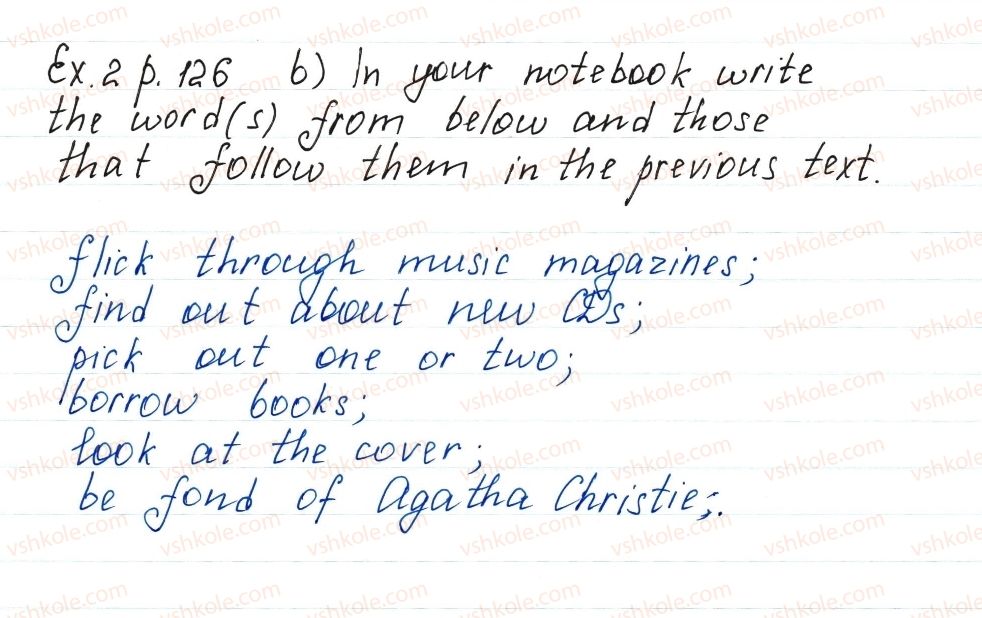 Ex. 2 p. 126 b) In your notebook write
the word(s) from below and those
that follow them in the previous text.
flick through music magazines;
find out about new CDs;
pick out one or two;
borrow books;
look at the cover;
be fond of Agatha Christie;.